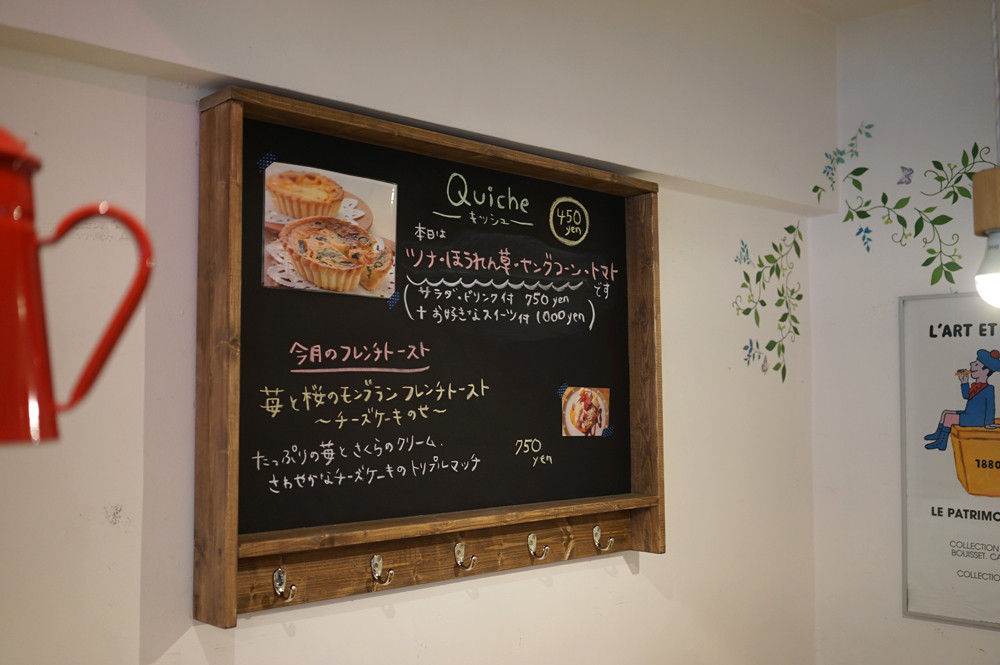 Quiche
キッシュ
450
yen
本日は
ツナ・ほうれん草・ヤングコーン・トマト
です
(サラダ・ドリンク付 750 yen
+お好きなスイーツ付 1000 yen)
今月のフレンチトースト
苺と桜のモンブランフレンチトースト
～チーズケーキのせ～
たっぷりの苺とさくらのクリーム.
さわやかなチーズケーキのトリプルマッチ
750
yen
L'ART ET
1880
LE PATRIMO
COLLECTION
BOUISSET. CA
COLLECTIO